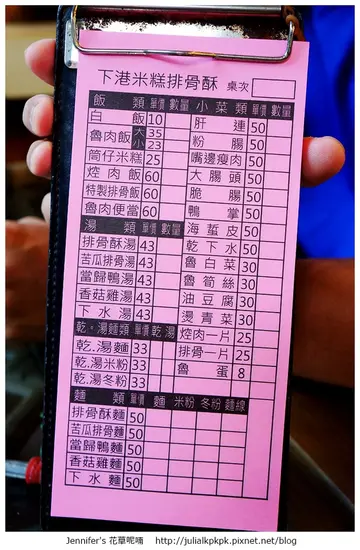 下港米糕排骨酥 桌次
飯類 單價 數量 小菜類 單價 數量
白飯 10 肝連 50
魯肉飯 大 35 粉腸 50
小 23 嘴邊瘦肉 50
筒仔米糕 25 大腸頭 50
焢肉飯 60 脆腸 50
特製排骨飯 60 鴨掌 50
魯肉便當 60 海蜇皮 50
湯類 單價 數量 乾下水 50
排骨酥湯 43 魯白菜 30
苦瓜排骨湯 43 魯筍絲 30
當歸鴨湯 43 油豆腐 30
香菇雞湯 43 燙青菜 30
下水湯 43 焢肉一片 25
乾.湯麵類 單價 乾 湯 排骨一片 25
乾.湯麵 33 魯蛋 8
乾.湯米粉 33
乾.湯冬粉 33
麵類 單價 麵 米粉 冬粉 麵線
排骨酥麵 50
苦瓜排骨麵 50
當歸鴨麵 50
香菇雞麵 50
下水麵 50
Jennifer's 花草呢喃 http://julialkpkpk.pixnet.net/blog